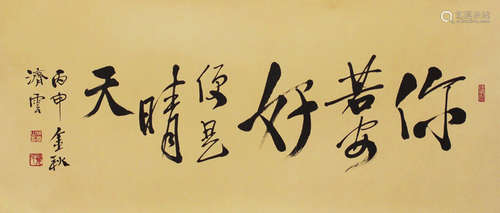 你若安好便是晴天
丙申金秋
濟雲